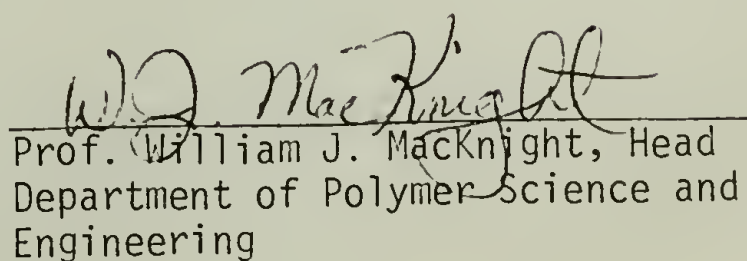 W. J. MacKnight
Prof. William J. MacKnight, Head
Department of Polymer Science and
Engineering